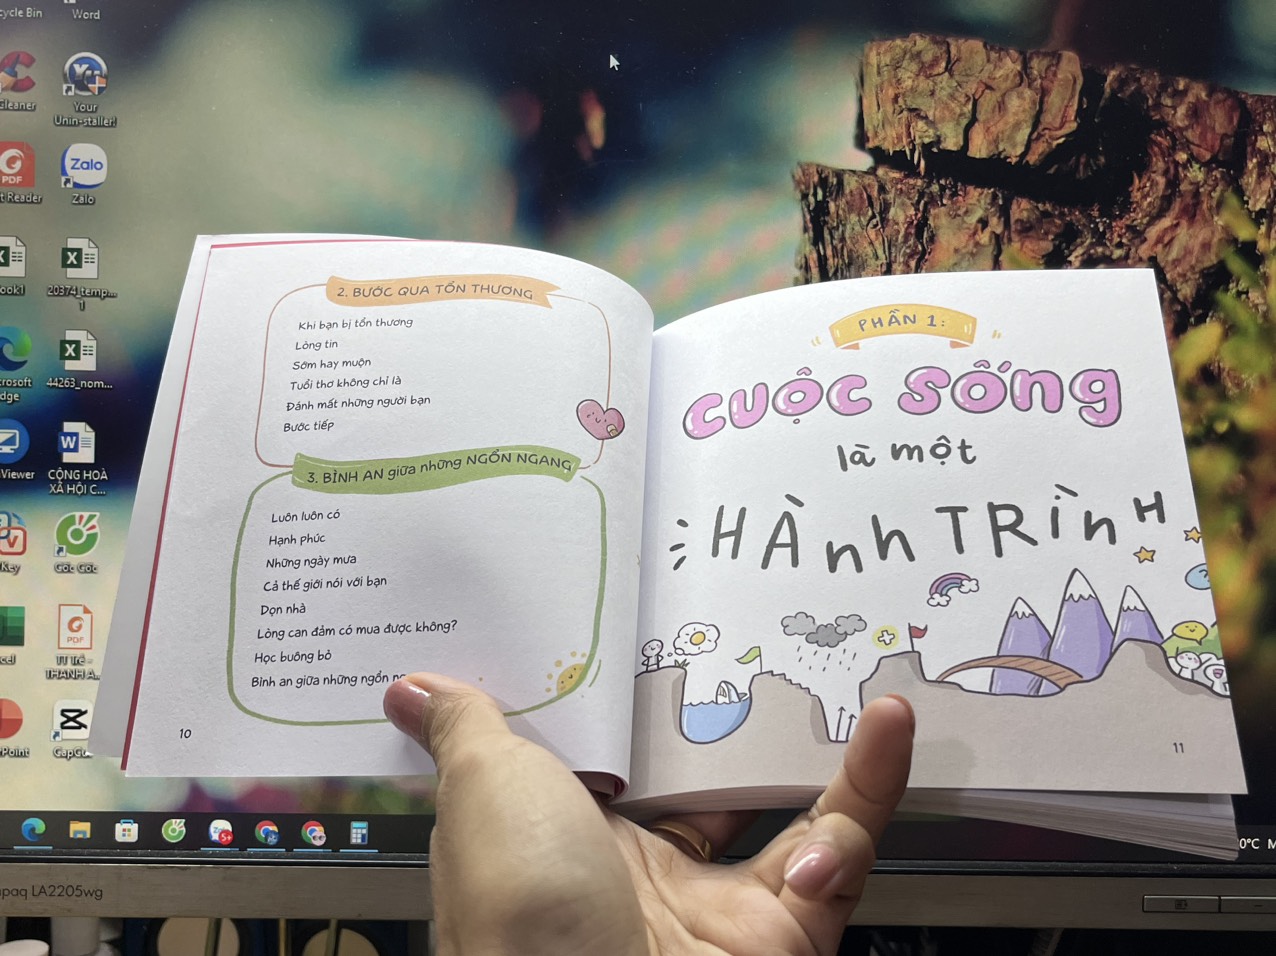 Word
Your
Unin-staller!
PDF
Zalo
Zalo
20374_temp...
1
44263_nom...
CỘNG HOÀ
XÃ HỘI C...
Cốc Cốc
PDF
TT Trẻ -
THANH A...
CapCu
2. BƯỚC QUA TỔN THƯƠNG
Khi bạn bị tổn thương
Lòng tin
Sớm hay muộn
Tuổi thơ không chỉ là
Đánh mất những người bạn
Bước tiếp
3. BÌNH AN giữa những NGỔN NGANG
Luôn luôn có
Hạnh phúc
Những ngày mưa
Cả thế giới nói với bạn
Dọn nhà
Lòng can đảm có mua được không?
Học buông bỏ
Bình an giữa những ngổn
10
PHẦN 1:
CUỘC SỐNG
là một
HÀnh TRÌnH
11
LA2205wg